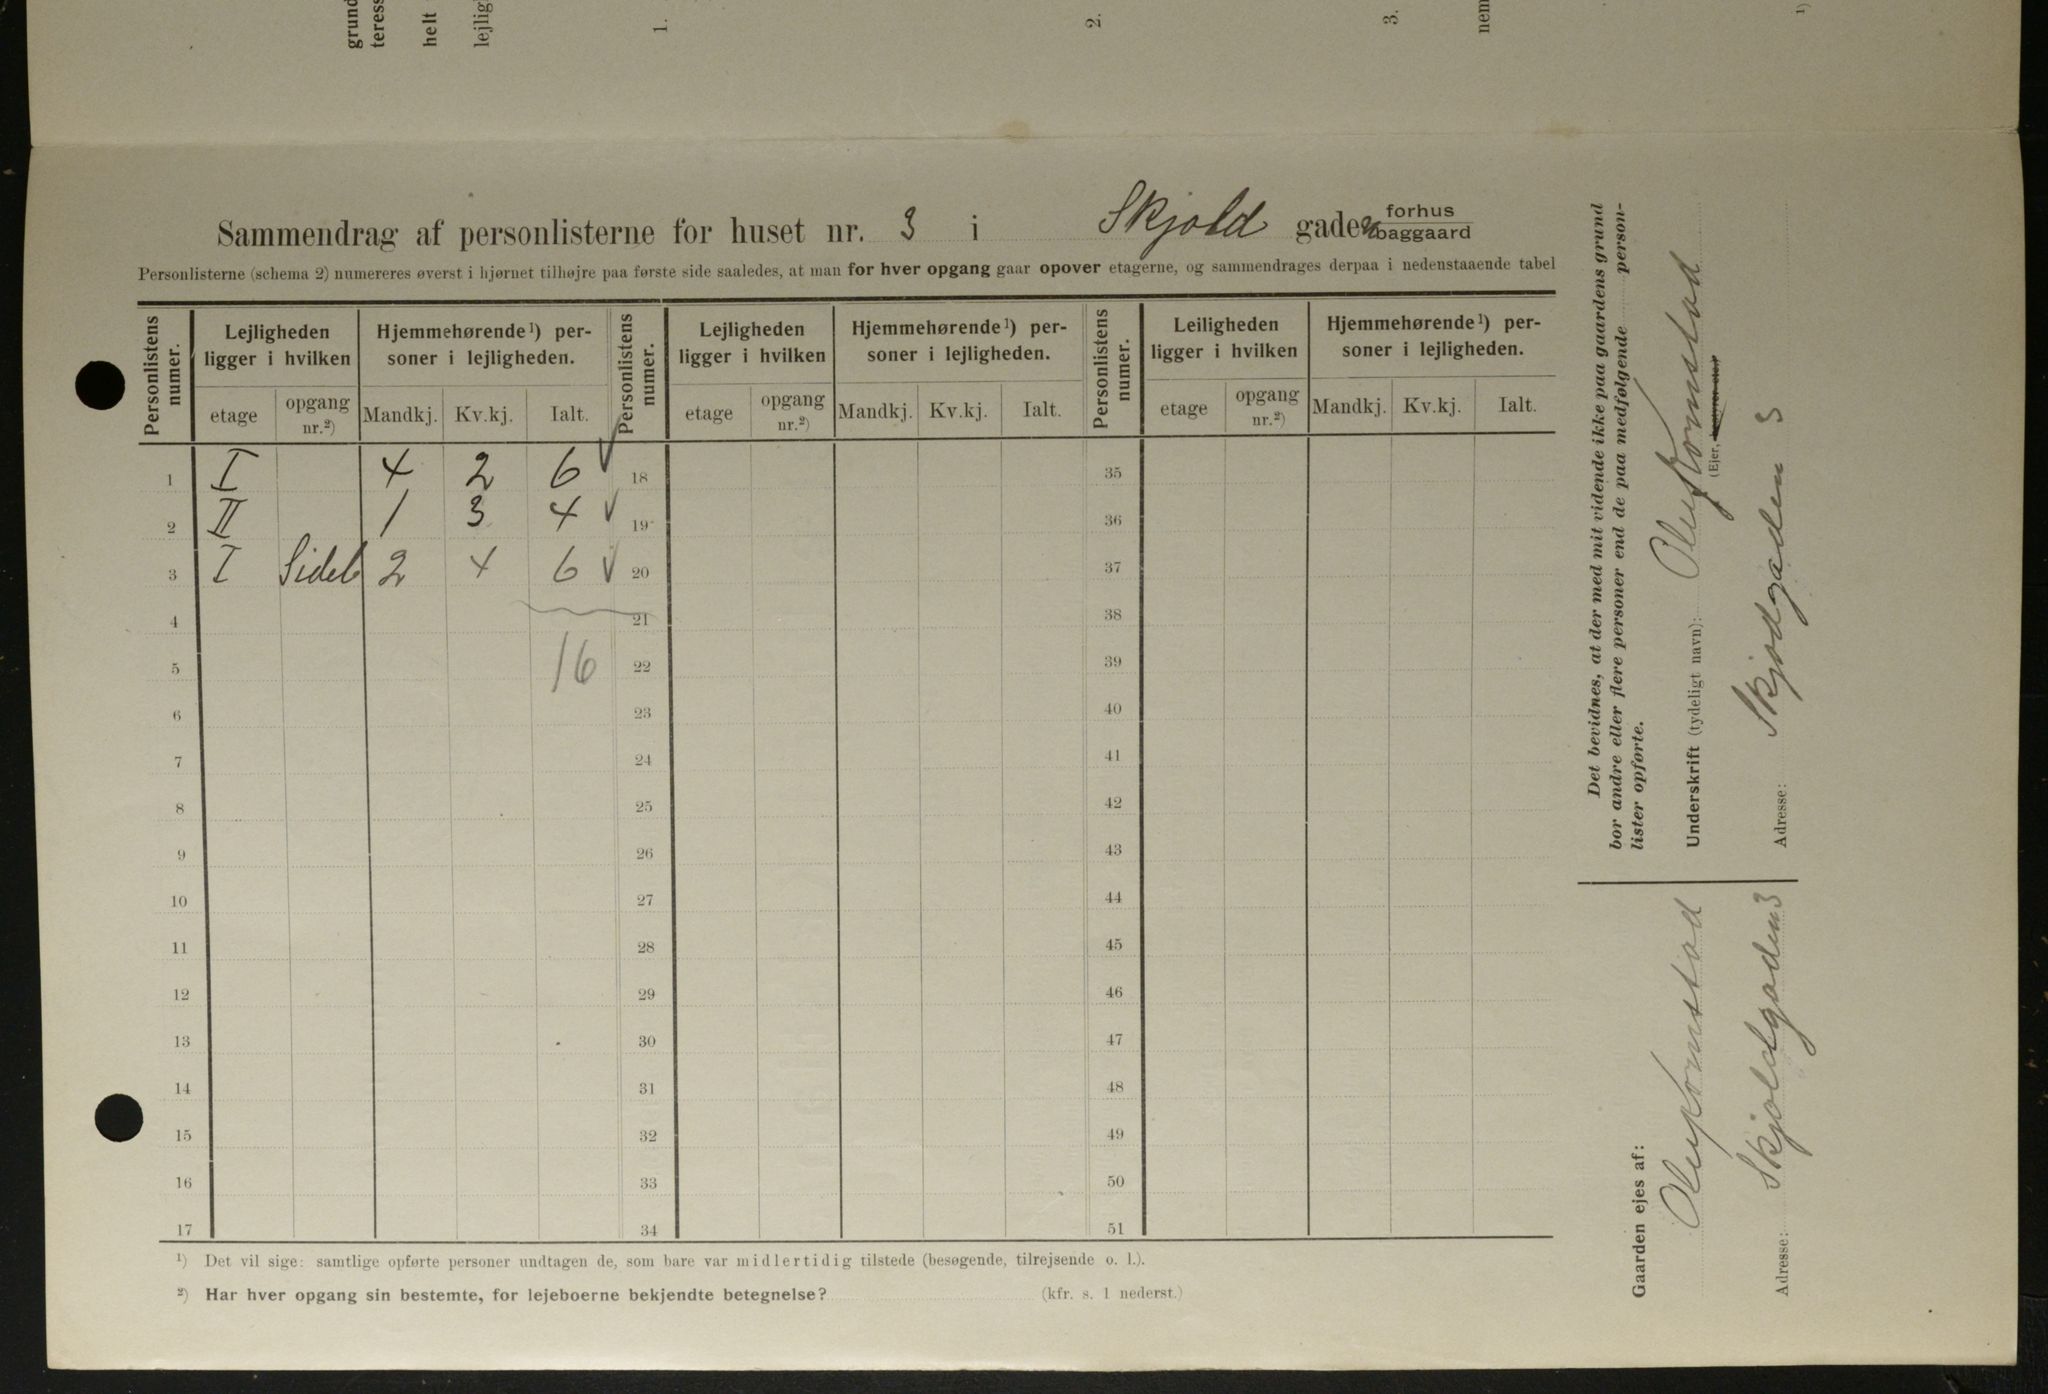 grund
teress
helt
lejlig
1.
2.
3.
nem
1)
Sammendrag af personlisterne for huset nr. 3 i Skjold gaden forhus
baggaard
Personlisterne (schema 2) numereres øverst i hjørnet tilhøjre paa første side saaledes, at man for hver opgang gaar opover etagerne, og sammendrages derpaa i nedenstaaende tabel
Personlistens numer. Lejligheden ligger i hvilken Hjemmehørende¹) personer i lejligheden. Personlistens numer. Lejligheden ligger i hvilken Hjemmehørende¹) personer i lejligheden. Personlistens numer. Leiligheden ligger i hvilken Hjemmehørende¹) personer i lejligheden.
etage opgang nr.²) Mandkj. Kv.kj. Ialt. etage opgang nr.²) Mandkj. Kv.kj. Ialt. etage opgang nr.²) Mandkj. Kv.kj. Ialt.
1 I 4 2 6 ✓ 18 35
2 II 1 3 4 ✓ 19 36
3 I Sideb 2 4 6 ✓ 20 37
4 21 38
5 16 22 39
6 23 40
7 24 41
8 25 42
9 26 43
10 27 44
11 28 45
12 29 46
13 30 47
14 31 48
15 32 49
16 33 50
17 34 51
¹) Det vil sige: samtlige opførte personer undtagen de, som bare var midlertidig tilstede (besøgende, tilrejsende o. l.).
²) Har hver opgang sin bestemte, for lejeboerne bekjendte betegnelse? (kfr. s. 1 nederst.)
Det bevidnes, at der med mit vidende ikke paa gaardens grund
bor andre eller flere personer end de paa medfølgende person-
lister opførte.
Underskrift (tydeligt navn): Oluf Kornstad
(Ejer,
Adresse: Skjodgaden 3
Gaarden ejes af:
Oluf Kornstad
Adresse: Skjoldgaden 3